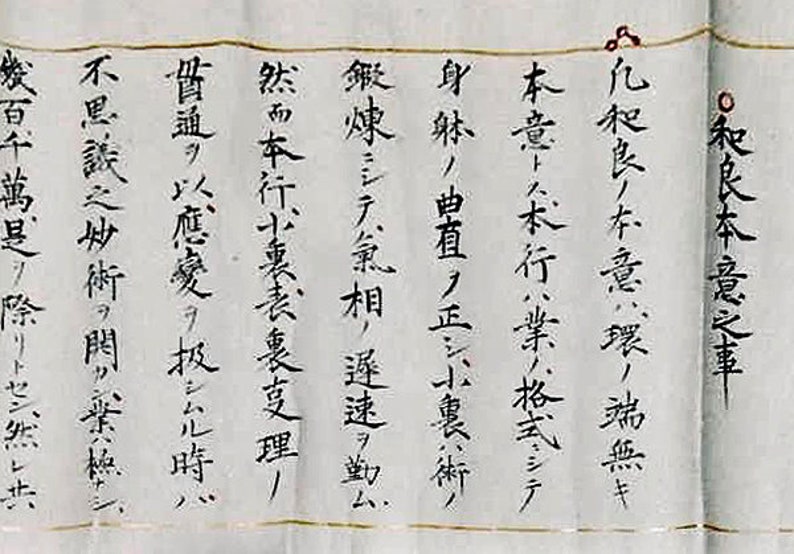 和良本意之車
凢和良ノ本意ハ環ノ端無キ
本意トス本行ハ業ノ格式ニシテ
身躰ノ曲直ヲ正シ小裏ハ術ノ
鍜煉ニシテ氣相ノ遅速ヲ勤ム
然而本行小裏表裏変理ノ
貫通ヲ以應變ヲ扱シムル時ハ
不思議之妙術ヲ関ク業ハ極ナシ
幾百千萬是ヲ際リトセン然レ共